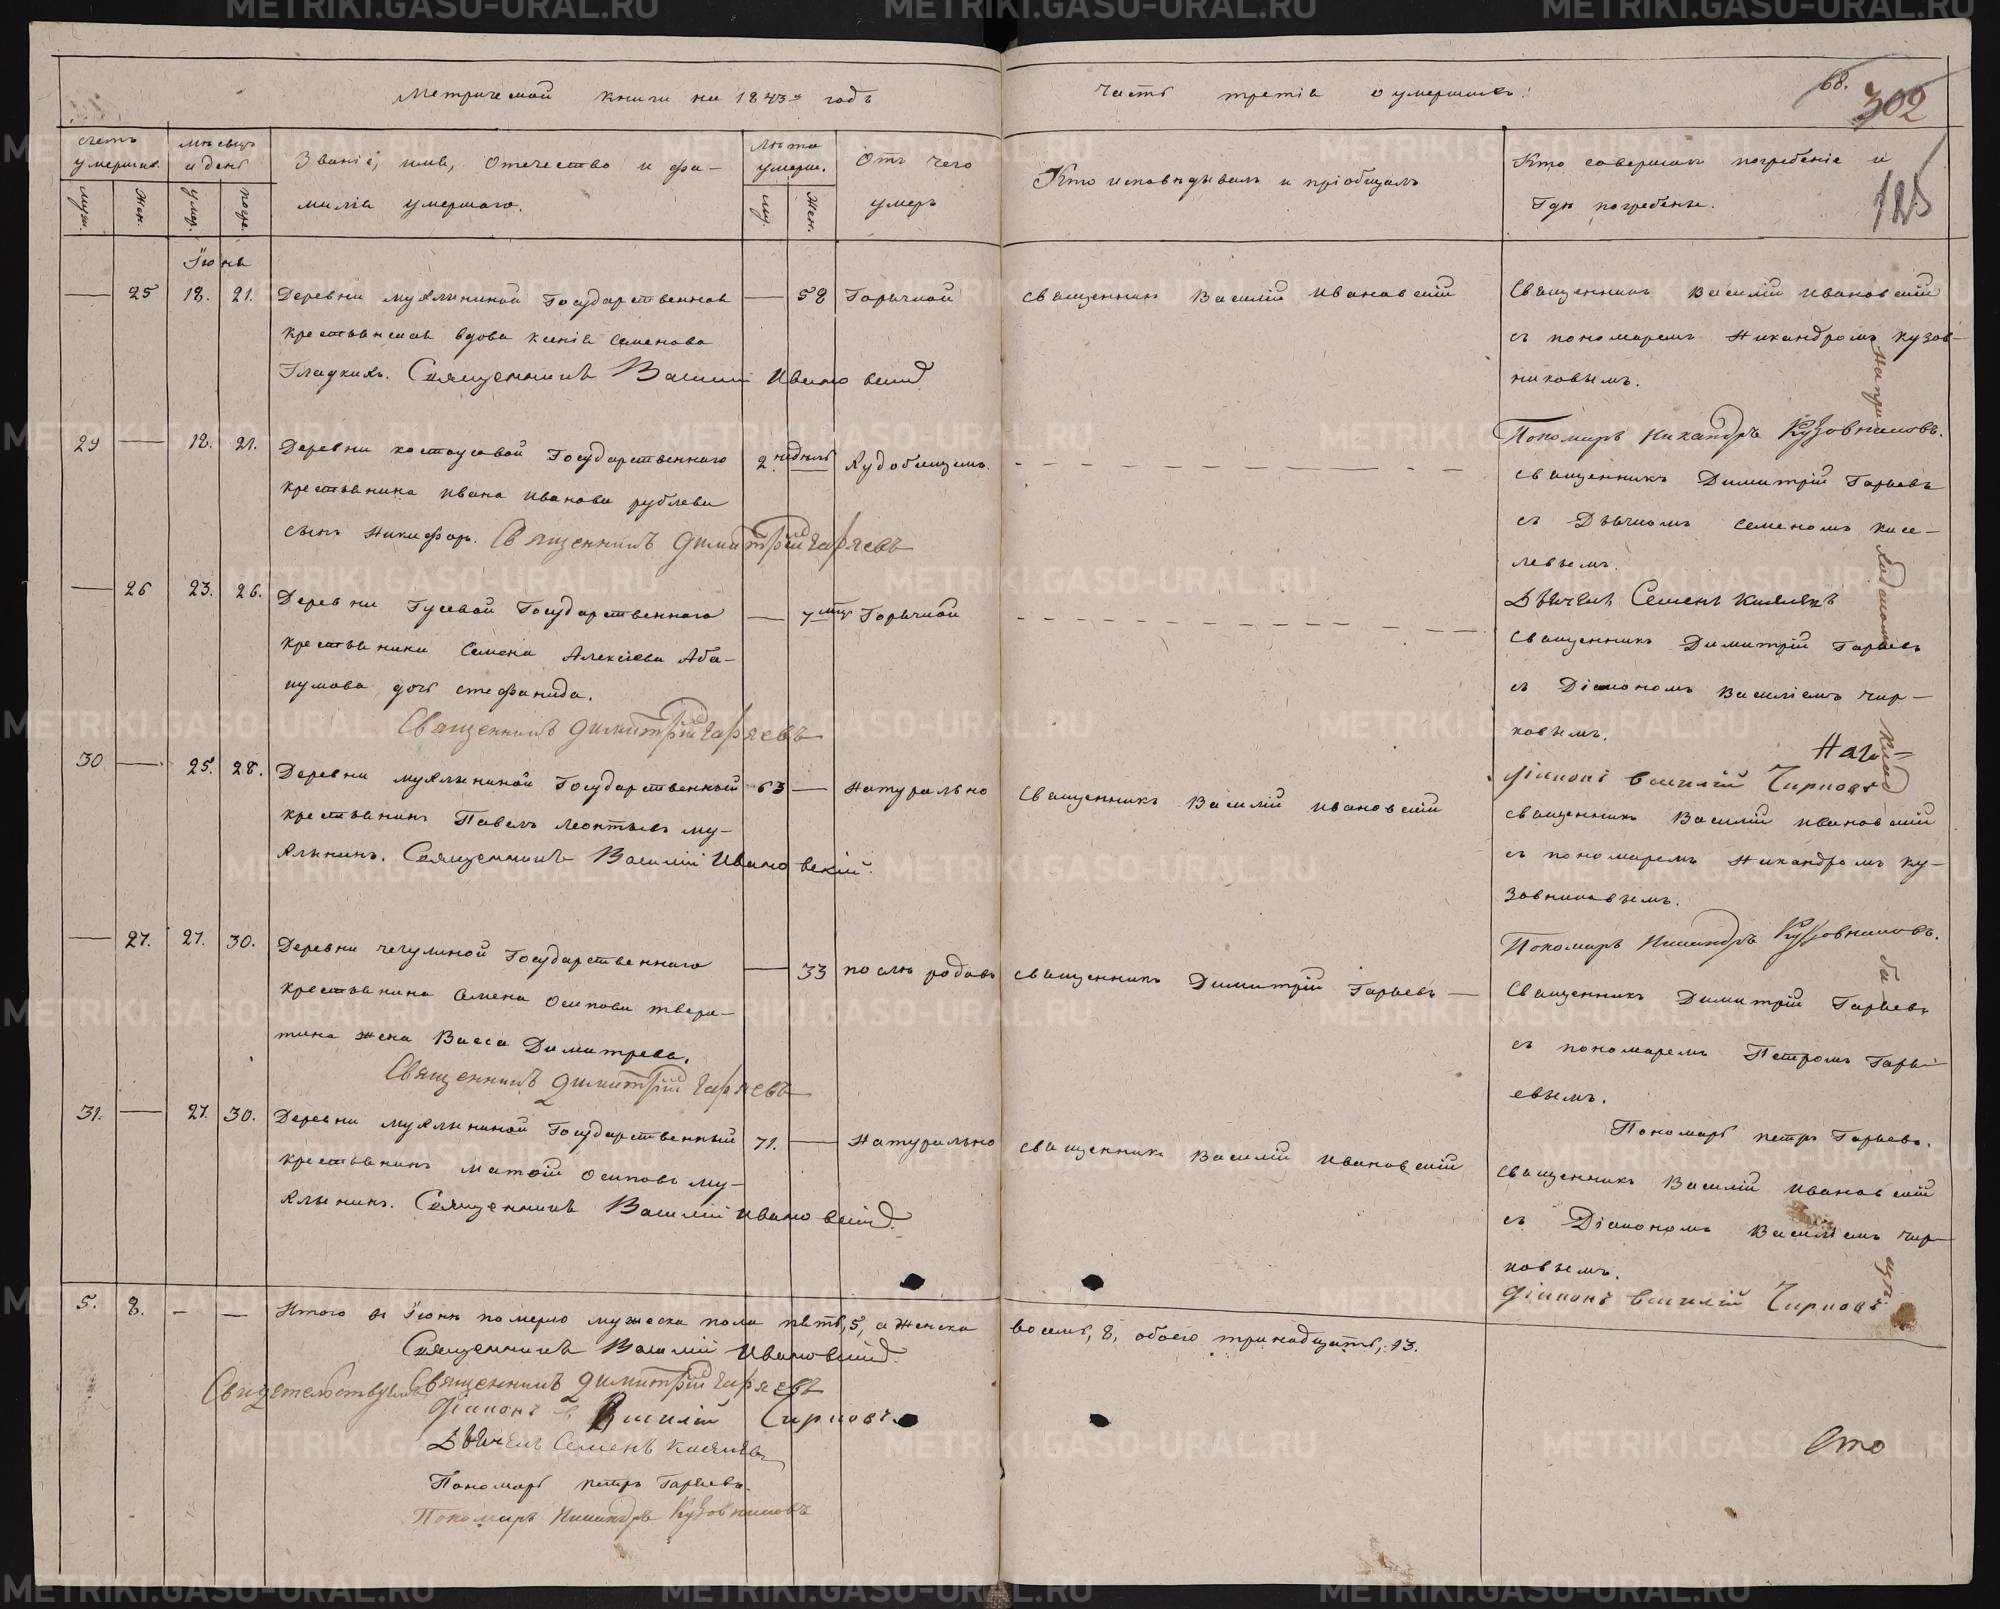 Метрической книги на 1843й годъ
Часть третія о умершихъ:
68.
302
125
счетъ умершихъ.
муж.
жен.
мѣсяцъ и день
умер.
погре.
Званіе, имя, отечество и фа-
милія умершаго.
лѣта умерш.
му.
жен.
Отъ чего
умеръ
Кто исповѣдывалъ и пріобщалъ
Кто совершалъ погребеніе и
гдѣ погребены.
Іюнь
— 25 18. 21. Деревни мухлыниной Государственная — 58 Горячкой Священникъ Василій Ивановскій Священникъ Василій Ивановскій
крестьянская вдова Ксенія Семенова
Гладкихъ. Священникъ Василій Ивановскій
съ пономаремъ Никандромъ Кузов-
никовымъ.
Пономарь Никандръ Кузовниковъ.
29 — 18. 21. Деревни костоусовой Государственнаго 2 недѣль — Худобищемъ.
крестьянина Ивана Иванова рублева
сынъ Никифоръ. Священникъ Димитрій Гаряевъ
Священникъ Димитрій Гаряевъ
съ Дьячкомъ Семеномъ Кисе-
левымъ.
Дьячекъ Семенъ Киселевъ
— 26 23. 26. Деревни Гусевой Государственнаго — 7 мцъ Горячкой
крестьянина Семена Алексіева Аба-
кумова дочь Стефанида.
Священникъ Димитрій Гаряевъ
Священникъ Димитрій Гаряевъ
съ Діакономъ Василіемъ Чир-
ковымъ.
Діаконъ Василій Чирковъ
30 — 25. 28. Деревни мухлыниной Государственный 63 — Натурально Священникъ Василій Ивановскій
крестьянинъ Павелъ Леонтьевъ му-
хлынинъ. Священникъ Василій Ивановскій.
Священникъ Василій Ивановскій
съ пономаремъ Никандромъ Ку-
зовниковымъ.
Пономарь Никандръ Кузовниковъ.
— 27. 27. 30. Деревни чечулиной Государственнаго — 33 послѣ родовъ Священникъ Димитрій Гаряевъ —
крестьянина Семена Осипова твери-
тина жена Васса Димитрева.
Священникъ Димитрій Гаряевъ
Священникъ Димитрій Гаряевъ
съ пономаремъ Петромъ Гаря-
евымъ.
Пономарь Петръ Гаряевъ.
31. — 27. 30. Деревни мухлыниной Государственный 71. — Натурально Священникъ Василій Ивановскій
крестьянинъ Матѳій Осиповъ му-
хлынинъ. Священникъ Василій Ивановскій.
Священникъ Василій Ивановскій
съ Діакономъ Василіемъ Чир-
ковымъ.
Діаконъ Василій Чирковъ
На приходскомъ кладбищѣ
5. 8. — — Итого въ Іюнѣ померло мужеска пола пять, 5, а женска восемь, 8, обоего тринадцать, 13.
Священникъ Василій Ивановскій.
Свидетельствуемъ Священникъ Димитрій Гаряевъ
Діаконъ Василій Чирковъ
Дьячекъ Семенъ Киселевъ
Пономарь Петръ Гаряевъ.
Пономарь Никандръ Кузовниковъ
Сто
METRIKI.GASO-URAL.RU